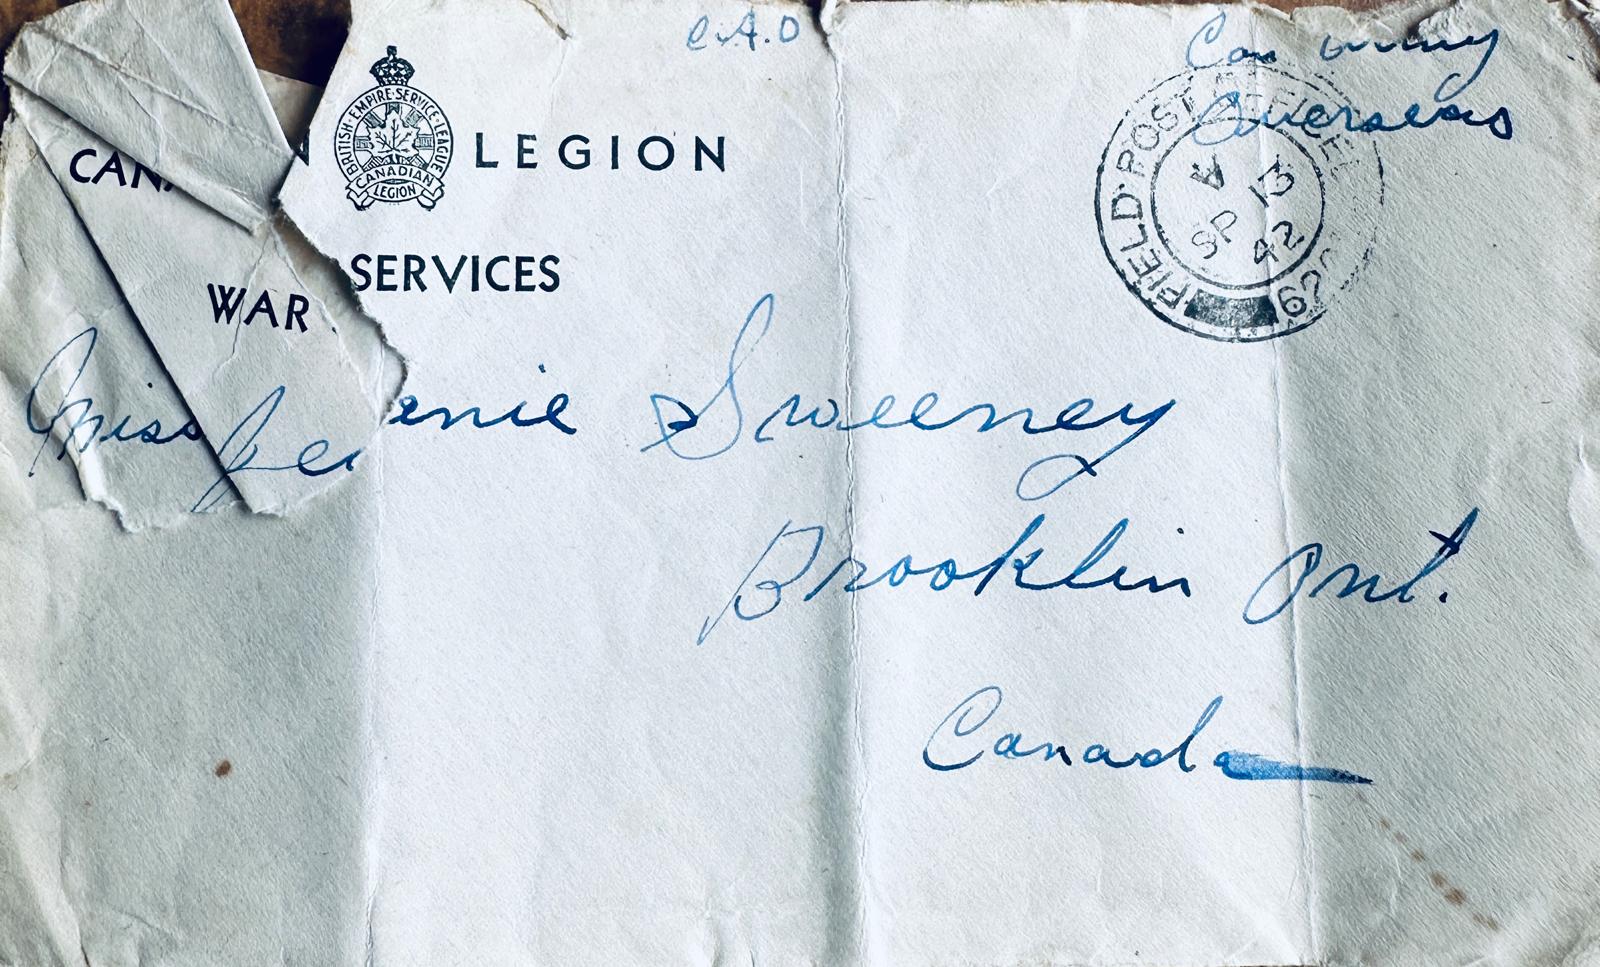 C.A.O
Can army
Overseas
BRITISH·EMPIRE·SERVICE·LEAGUE
CANADIAN
LEGION
LEGION
WAR SERVICES
FIELD POST OFFICE
SP 13
42
Miss Jeenie Sweeney
Brooklin Ont.
Canada